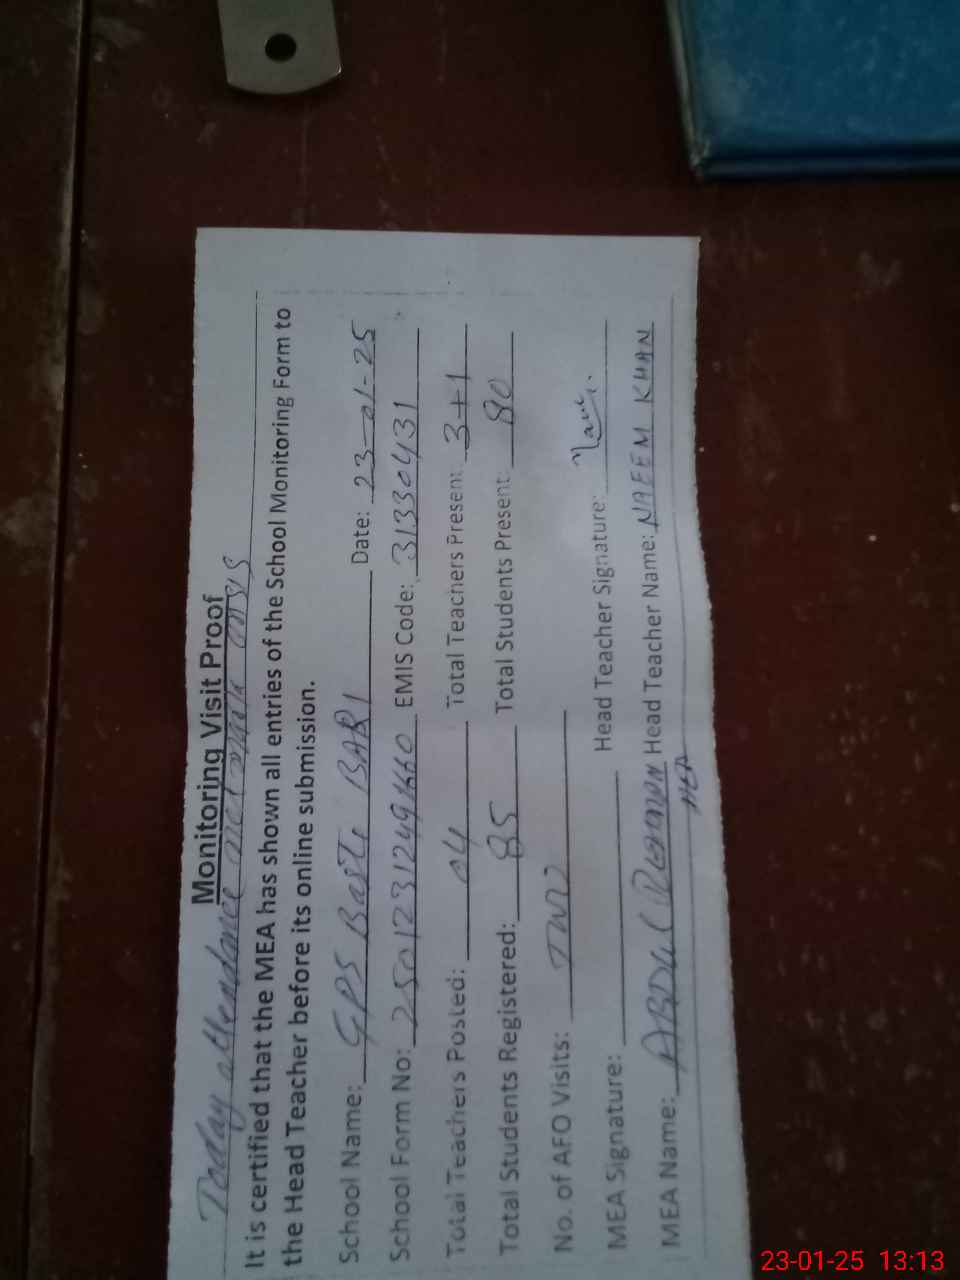 Monitoring Visit Proof
Today attendance
It is certified that the MEA has shown all entries of the School Monitoring Form to
the Head Teacher before its online submission.
School Name: GPS Basti BARI Date: 23-01-25
School Form No: EMIS Code: 31330431
Total Teachers Posted: 04 Total Teachers Present: 3+1
Total Students Registered: 85 Total Students Present: 80
No. of AFO Visits: TWO
MEA Signature: Head Teacher Signature:
MEA Name: ABDUL REHMAN Head Teacher Name: NAEEM KHAN
MEA
23-01-25 13:13